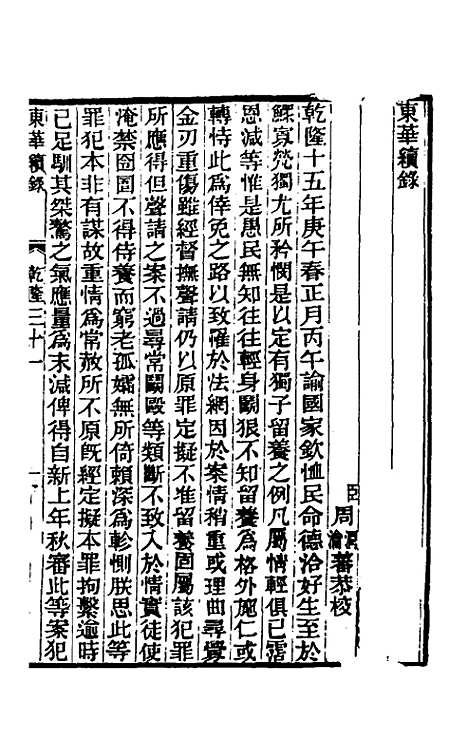 東華續錄
臣周潤蕃瀹蕃恭校
乾隆十五年庚午春正月丙午諭國家欽恤民命德洽好生至於
鰥寡煢獨尤所矜憫是以定有獨子留養之例凡屬情輕俱已霑
恩減等惟是愚民無知往往輕身鬭狠不知留養為格外施仁或
轉恃此為倖免之路以致罹於法網因於案情稍重或理曲尋釁
金刃重傷雖經督撫聲請仍以原罪定擬不准留養固屬該犯罪
所應得但聲請之案不過尋常鬭毆等類斷不致入於情實徒使
淹禁囹圄不得侍養而窮老孤孀無所倚賴深為軫惻朕思此等
罪犯本非有謀故重情為常赦所不原旣經定擬本罪拘繫逾時
已足馴其桀驁之氣應量為末減俾得自新上年秋審此等案犯
東華續錄 乾隆三十一 一